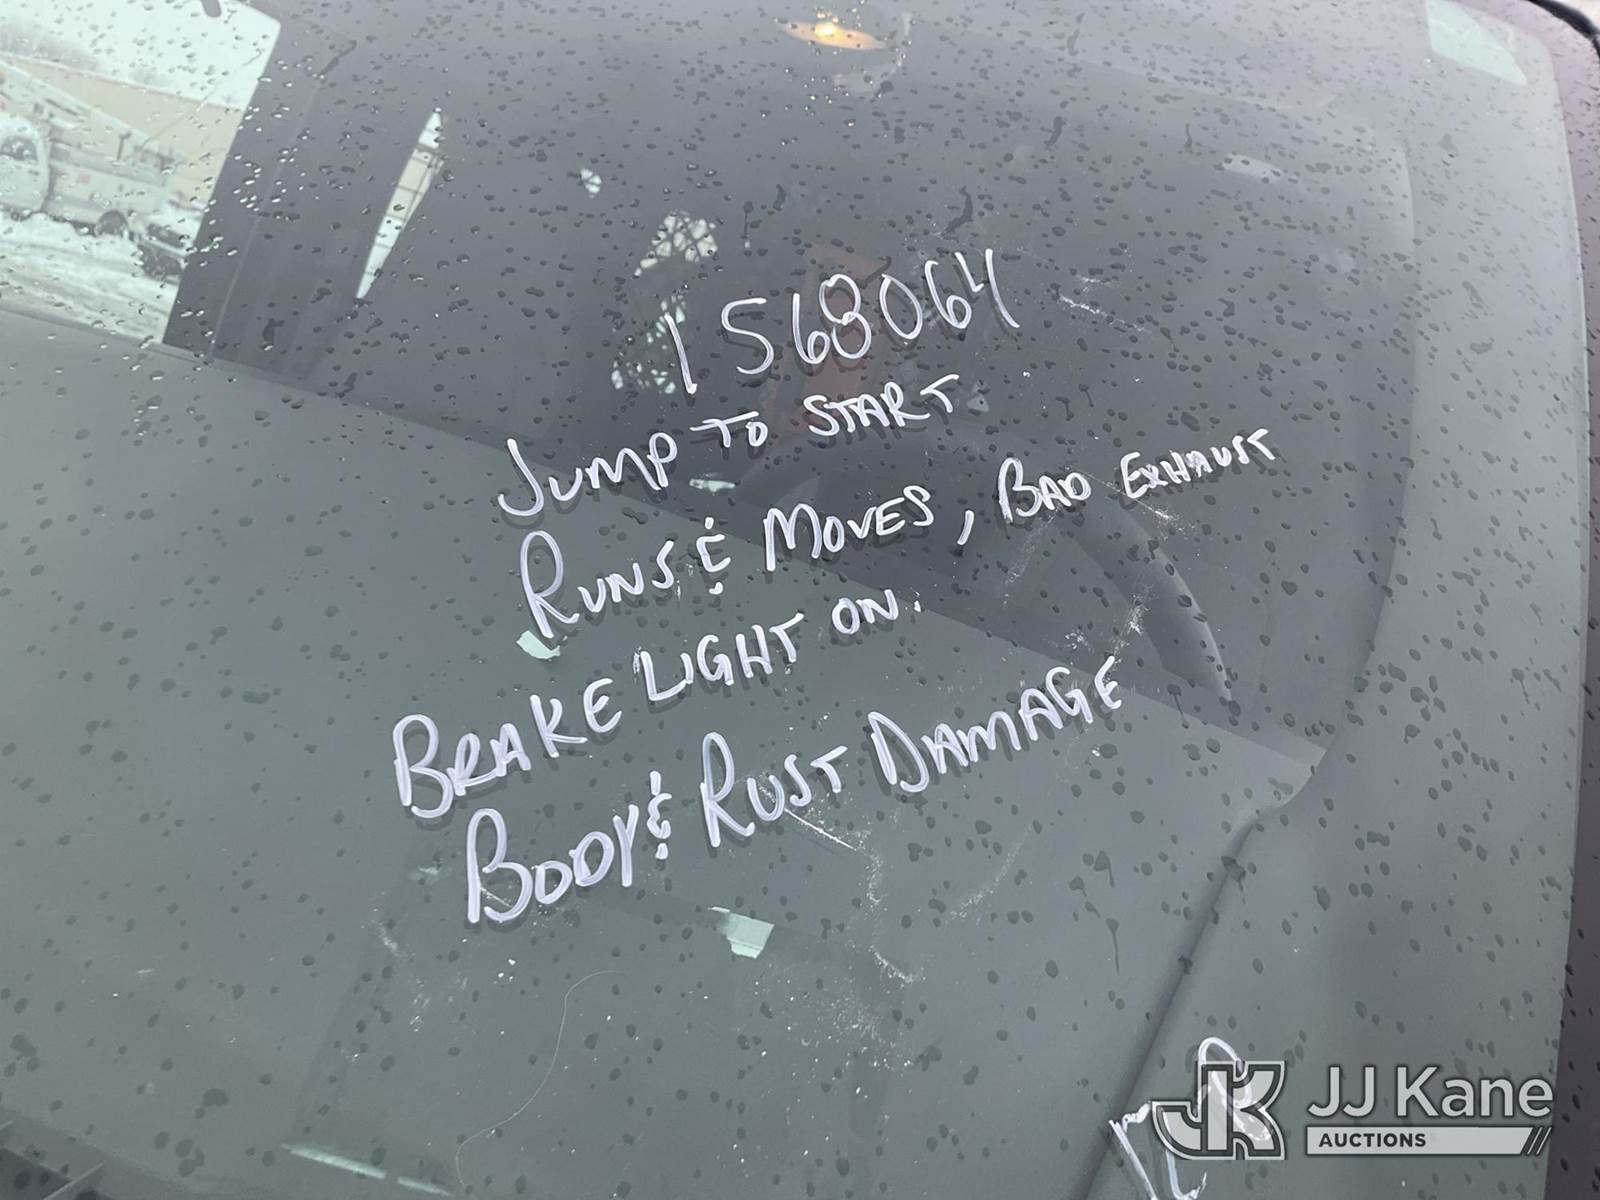 1568064
JUMP TO START
RUNS & MOVES, BAD EXHAUST
BRAKE LIGHT ON.
BODY & RUST DAMAGE
JJ Kane
AUCTIONS